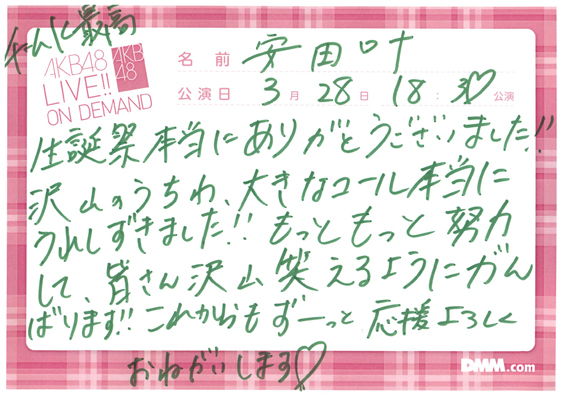 チームK最高
AKB48
LIVE!!
ON DEMAND
AKB
48
名前 安田叶
公演日 3月28日 18:30公演
生誕祭本当にありがとうございました!!
沢山のうちわ、大きなコール本当に
うれしすぎました!! もっともっと努力
して、皆さん沢山笑えるようにがん
ばります!! これからもずーっと応援よろしく
おねがいします♡
DMM.com